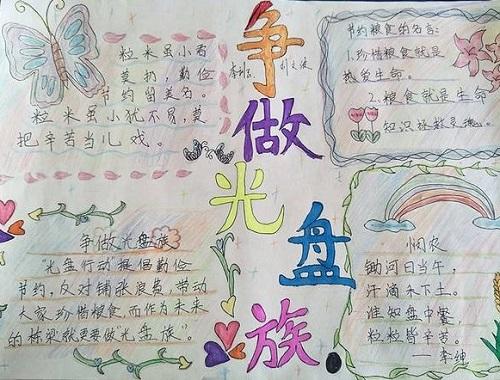 争做光盘族
粒米虽小君
莫扔，勤俭
节约留美名。
粒米虽小犹不易，莫
把辛苦当儿戏。
节约粮食的名言：
1.珍惜粮食就是
热爱生命。
2.粮食就是生命
知识拯救灵魂。
争做光盘族
"光盘行动"提倡勤俭
节约，反对铺张浪费，带动
大家珍惜粮食而作为未来
的栋梁就更要做"光盘族"。
悯农
锄河日当午，
汗滴禾下土。
谁知盘中餐，
粒粒皆辛苦。
——李绅